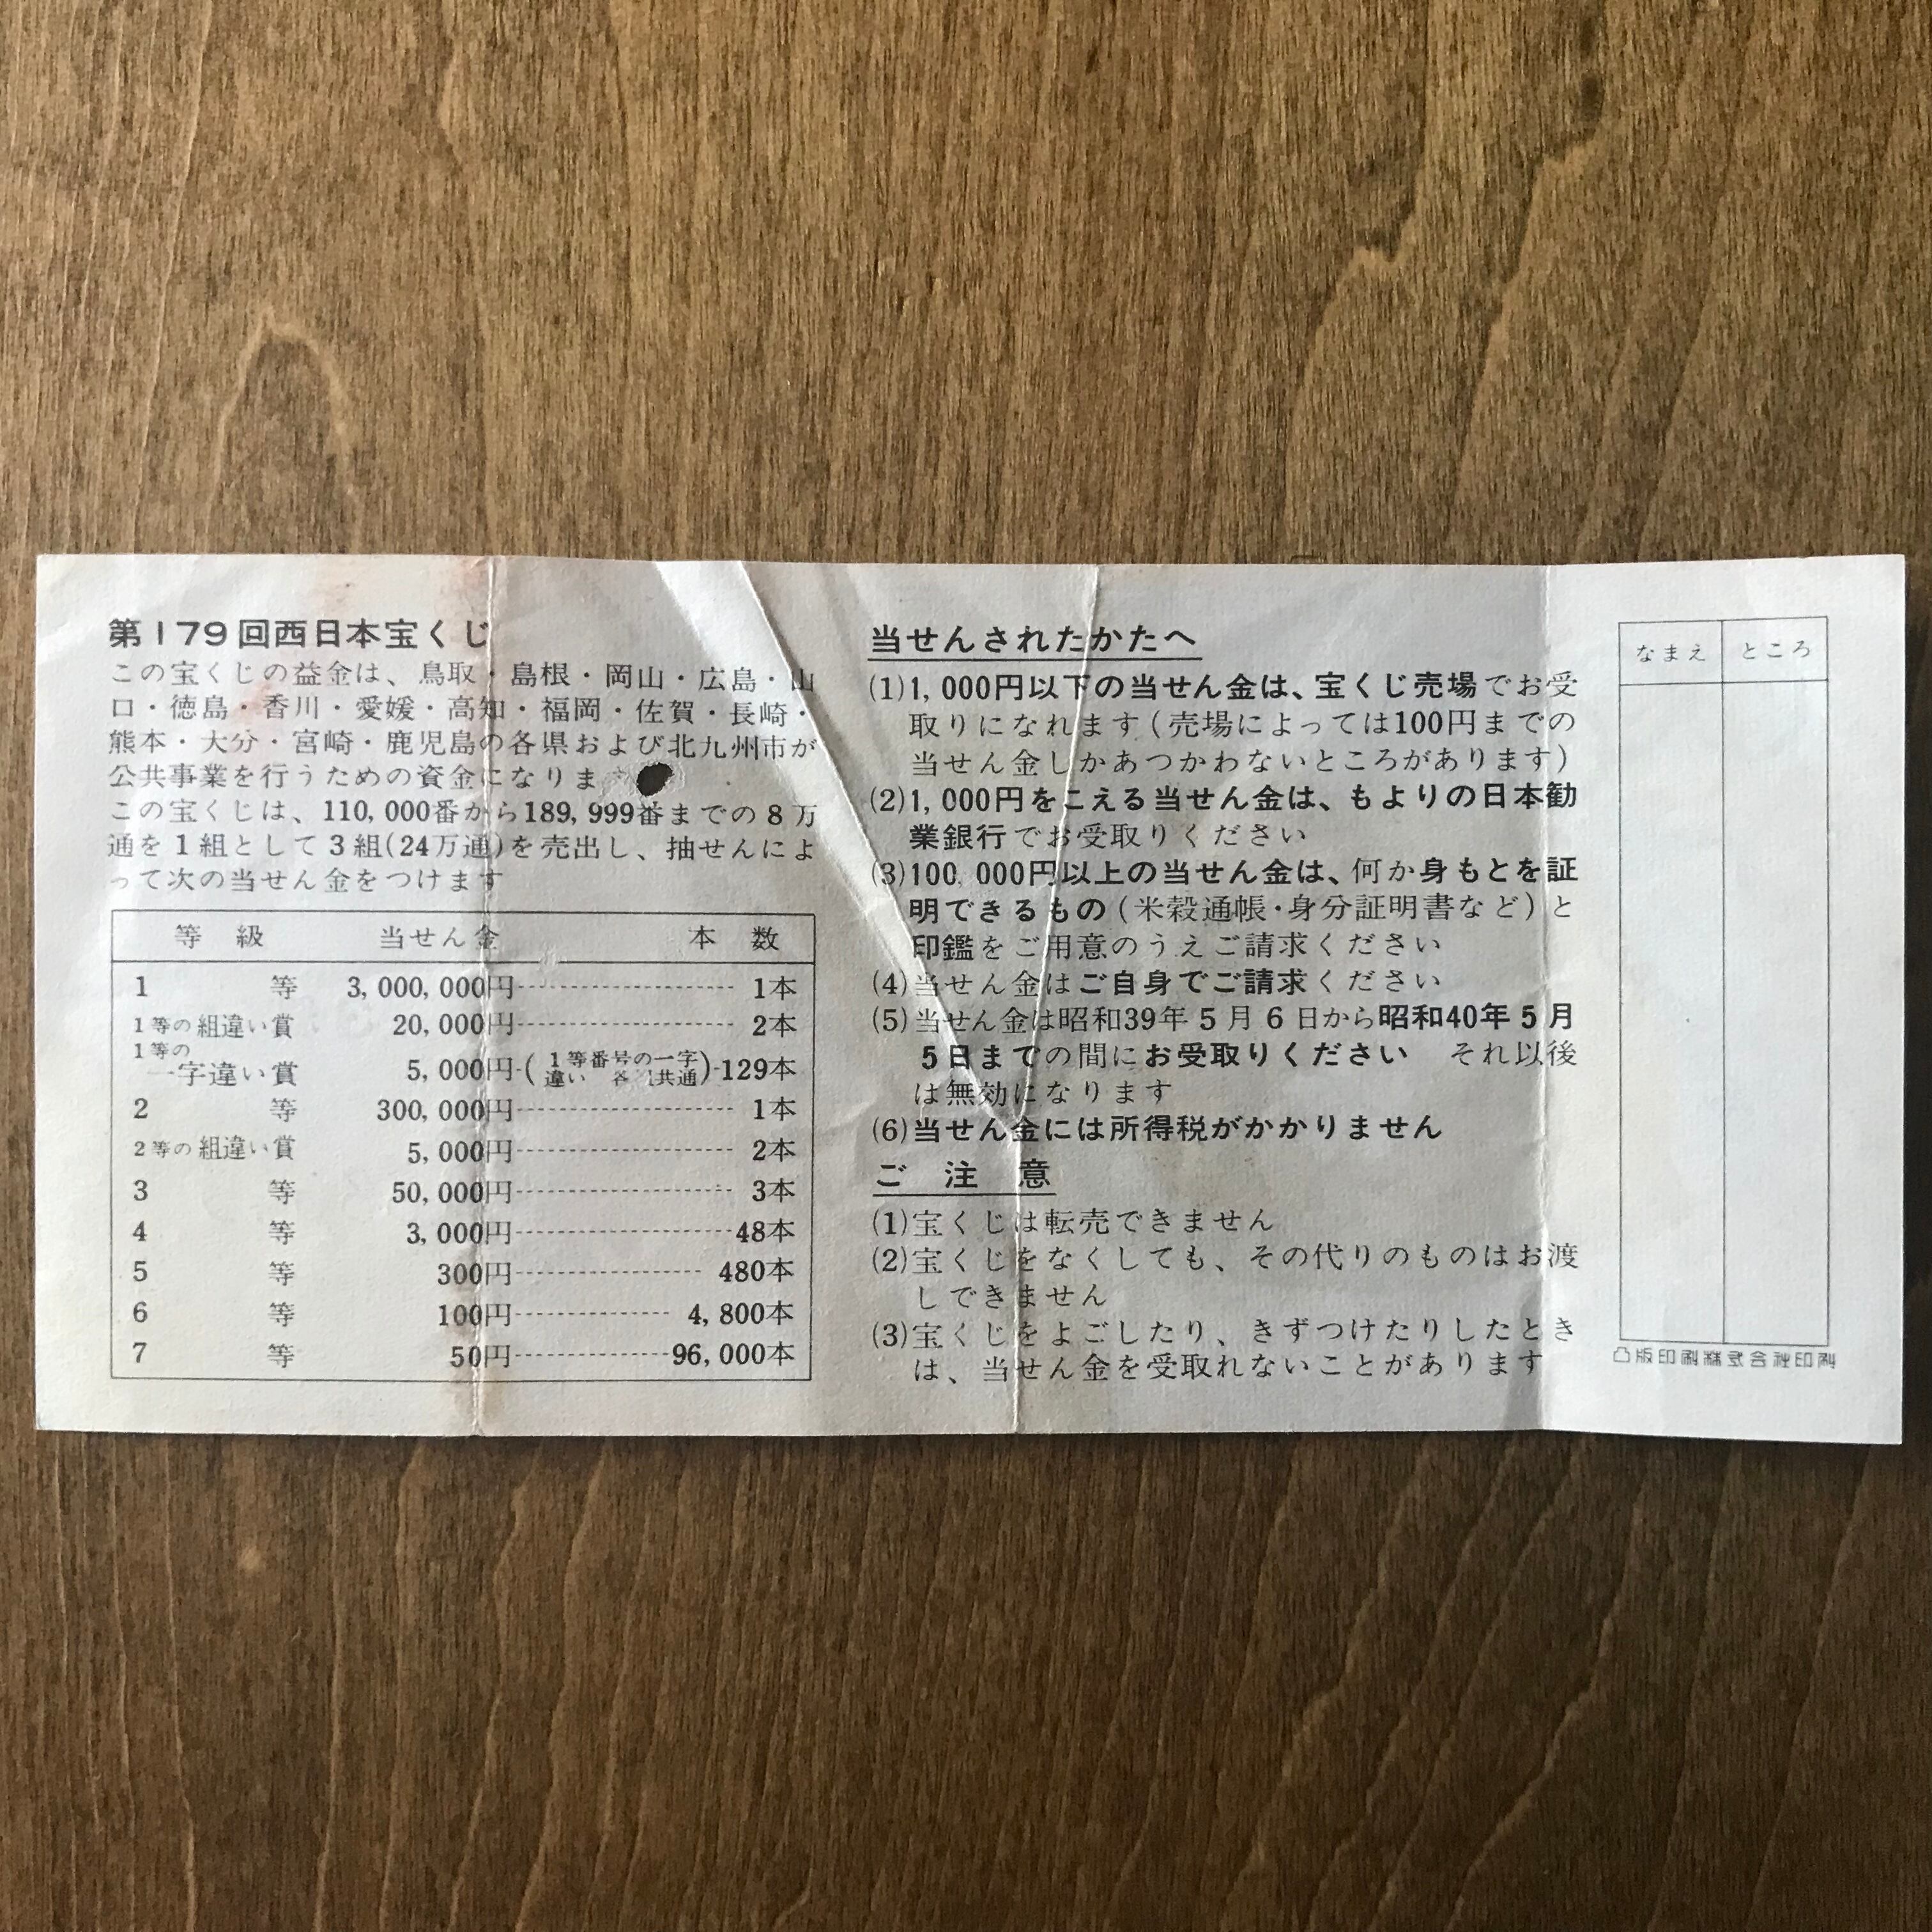 第179回西日本宝くじ
この宝くじの益金は、鳥取・島根・岡山・広島・山
口・徳島・香川・愛媛・高知・福岡・佐賀・長崎・
熊本・大分・宮崎・鹿児島の各県および北九州市が
公共事業を行うための資金になりま
この宝くじは、110,000番から189,999番までの8万
通を1組として3組(24万通)を売出し、抽せんによ
って次の当せん金をつけます
等級 当せん金 本数
1等 3,000,000円 1本
1等の組違い賞 20,000円 2本
1等の一字違い賞 5,000円(1等番号の一字違い 各 共通)129本
2等 300,000円 1本
2等の組違い賞 5,000円 2本
3等 50,000円 3本
4等 3,000円 48本
5等 300円 480本
6等 100円 4,800本
7等 50円 96,000本
当せんされたかたへ
(1)1,000円以下の当せん金は、宝くじ売場でお受
取りになれます(売場によっては100円までの
当せん金しかあつかわないところがあります)
(2)1,000円をこえる当せん金は、もよりの日本勧
業銀行でお受取りください
(3)100,000円以上の当せん金は、何か身もとを証
明できるもの(米穀通帳・身分証明書など)と
印鑑をご用意のうえご請求ください
(4)当せん金はご自身でご請求ください
(5)当せん金は昭和39年5月6日から昭和40年5月
5日までの間にお受取りください それ以後
は無効になります
(6)当せん金には所得税がかかりません
ご注意
(1)宝くじは転売できません
(2)宝くじをなくしても、その代りのものはお渡
しできません
(3)宝くじをよごしたり、きずつけたりしたとき
は、当せん金を受取れないことがあります
なまえ ところ
凸版印刷株式会社印刷